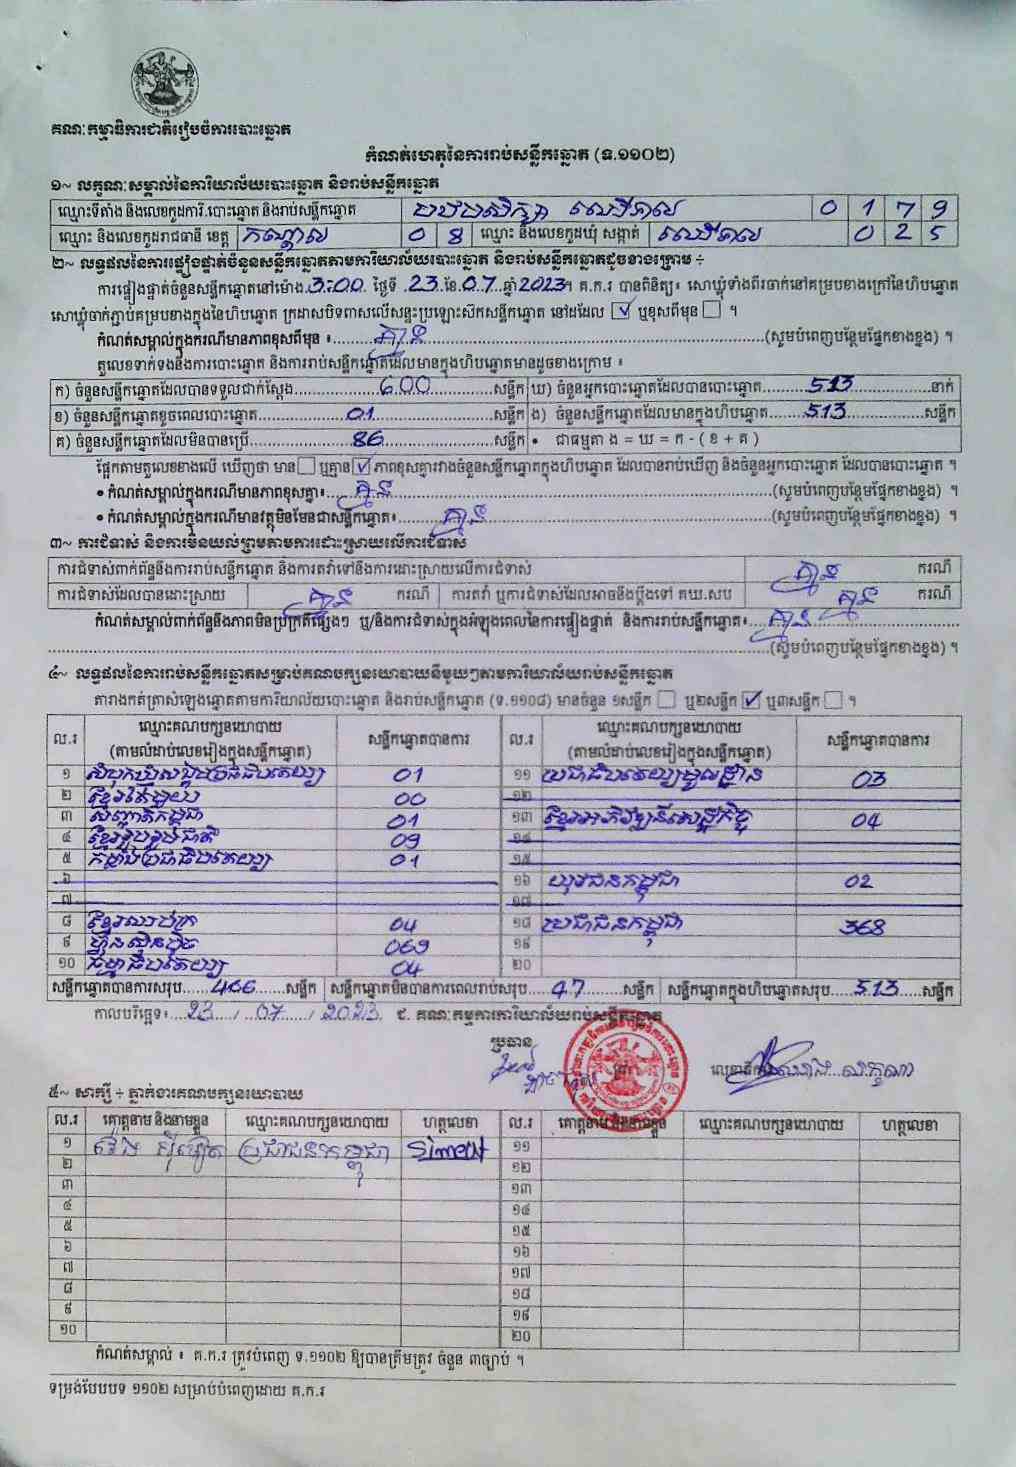 គណៈកម្មាធិការជាតិរៀបចំការបោះឆ្នោត
កំណត់ហេតុនៃការរាប់សន្លឹកឆ្នោត (ទ.១១០២)
១~ លក្ខណៈសម្គាល់នៃការិយាល័យបោះឆ្នោត និងរាប់សន្លឹកឆ្នោត
ឈ្មោះទីតាំង និងលេខកូដការិ.បោះឆ្នោត និងរាប់សន្លឹកឆ្នោត បឋមសិក្សា 0 1 7 9
ឈ្មោះ និងលេខកូដរាជធានី ខេត្ត កណ្តាល 0 8 ឈ្មោះ និងលេខកូដឃុំ សង្កាត់ 0 2 5
២~ លទ្ធផលនៃការផ្ទៀងផ្ទាត់ចំនួនសន្លឹកឆ្នោតតាមការិយាល័យបោះឆ្នោត និងរាប់សន្លឹកឆ្នោតដូចខាងក្រោម ÷
ការផ្ទៀងផ្ទាត់ចំនួនសន្លឹកឆ្នោតនៅម៉ោង 3:00 ថ្ងៃទី 23 ខែ 07 ឆ្នាំ 2023។ គ.ក.រ បានពិនិត្យ៖ សោឃ្លុំទាំងពីរចាក់នៅគម្របខាងក្រៅនៃហិបឆ្នោត
សោឃ្លុំចាក់ភ្ជាប់គម្របខាងក្នុងនៃហិបឆ្នោត ក្រដាសបិទពាសលើសន្ទះប្រឡោះស៊កសន្លឹកឆ្នោត នៅដដែល ☑ ឬខុសពីមុន ☐ ។
កំណត់សម្គាល់ក្នុងករណីមានភាពខុសពីមុន ៖ គ្មាន (សូមបំពេញបន្ថែមផ្នែកខាងខ្នង) ។
តួលេខទាក់ទងនឹងការបោះឆ្នោត និងការរាប់សន្លឹកឆ្នោតដែលមានក្នុងហិបឆ្នោតមានដូចខាងក្រោម ៖
ក) ចំនួនសន្លឹកឆ្នោតដែលបានទទួលជាក់ស្តែង 600 សន្លឹក ឃ) ចំនួនអ្នកបោះឆ្នោតដែលបានបោះឆ្នោត 513 នាក់
ខ) ចំនួនសន្លឹកឆ្នោតខូចពេលបោះឆ្នោត 01 សន្លឹក ង) ចំនួនសន្លឹកឆ្នោតដែលមានក្នុងហិបឆ្នោត 513 សន្លឹក
គ) ចំនួនសន្លឹកឆ្នោតដែលមិនបានប្រើ 86 សន្លឹក • ជាធម្មតា ង = ឃ = ក - ( ខ + គ )
ផ្អែកតាមតួលេខខាងលើ ឃើញថា មាន ☐ ឬគ្មាន ☑ ភាពខុសគ្នារវាងចំនួនសន្លឹកឆ្នោតក្នុងហិបឆ្នោត ដែលបានរាប់ឃើញ និងចំនួនអ្នកបោះឆ្នោត ដែលបានបោះឆ្នោត ។
• កំណត់សម្គាល់ក្នុងករណីមានភាពខុសគ្នា៖ គ្មាន (សូមបំពេញបន្ថែមផ្នែកខាងខ្នង) ។
• កំណត់សម្គាល់ក្នុងករណីមានវត្ថុមិនមែនជាសន្លឹកឆ្នោត៖ គ្មាន (សូមបំពេញបន្ថែមផ្នែកខាងខ្នង) ។
៣~ ការជំទាស់ និងការមិនយល់ព្រមតាមការដោះស្រាយលើការជំទាស់
ការជំទាស់ពាក់ព័ន្ធនឹងការរាប់សន្លឹកឆ្នោត និងការតវ៉ាទៅនឹងការដោះស្រាយលើការជំទាស់ គ្មាន ករណី
ការជំទាស់ដែលបានដោះស្រាយ គ្មាន ករណី ការតវ៉ា ឬការជំទាស់ដែលអាចនឹងប្តឹងទៅ គឃ.សប គ្មាន ករណី
កំណត់សម្គាល់ពាក់ព័ន្ធនឹងភាពមិនប្រក្រតីផ្សេងៗ ឬ/និងការជំទាស់ក្នុងអំឡុងពេលនៃការផ្ទៀងផ្ទាត់ និងការរាប់សន្លឹកឆ្នោត៖ គ្មាន
(សូមបំពេញបន្ថែមផ្នែកខាងខ្នង) ។
៤~ លទ្ធផលនៃការរាប់សន្លឹកឆ្នោតសម្រាប់គណបក្សនយោបាយនីមួយៗតាមការិយាល័យរាប់សន្លឹកឆ្នោត
តារាងកត់ត្រាសំឡេងឆ្នោតតាមការិយាល័យបោះឆ្នោត និងរាប់សន្លឹកឆ្នោត (ទ.១១០៨) មានចំនួន ១សន្លឹក ☐ ឬ២សន្លឹក ☑ ឬ៣សន្លឹក ☐ ។
ល.រ ឈ្មោះគណបក្សនយោបាយ (តាមលំដាប់លេខរៀងក្នុងសន្លឹកឆ្នោត) សន្លឹកឆ្នោតបានការ ល.រ ឈ្មោះគណបក្សនយោបាយ (តាមលំដាប់លេខរៀងក្នុងសន្លឹកឆ្នោត) សន្លឹកឆ្នោតបានការ
១ សំបុកឃ្មុំសង្គមប្រជាធិបតេយ្យ 01 ១១ ប្រជាធិបតេយ្យមូលដ្ឋាន 03
២ ខ្មែរតែមួយ 00 ១២
៣ សញ្ជាតិកម្ពុជា 01 ១៣ ខ្មែរអភិវឌ្ឍន៍សេដ្ឋកិច្ច 04
៤ ខ្មែររួបរួមជាតិ 09 ១៤
៥ កម្លាំងប្រជាធិបតេយ្យ 01 ១៥
៦ ១៦ យុវជនកម្ពុជា 02
៧ ១៧
៨ ខ្មែរឈប់ក្រ 04 ១៨ ប្រជាជនកម្ពុជា 368
៩ ហ៊្វុនស៊ិនប៉ិច 069 ១៩
១០ ធម្មាធិបតេយ្យ 04 ២០
សន្លឹកឆ្នោតបានការសរុប 466 សន្លឹក សន្លឹកឆ្នោតមិនបានការពេលរាប់សរុប 47 សន្លឹក សន្លឹកឆ្នោតក្នុងហិបឆ្នោតសរុប 513 សន្លឹក
កាលបរិច្ឆេទ៖ 23 / 07 / 2023 ជ. គណៈកម្មការការិយាល័យរាប់សន្លឹកឆ្នោត
ប្រធាន
លេខាធិការ
៥~ សាក្សី ÷ ភ្នាក់ងារគណបក្សនយោបាយ
ល.រ គោត្តនាម និងនាមខ្លួន ឈ្មោះគណបក្សនយោបាយ ហត្ថលេខា ល.រ គោត្តនាម និងនាមខ្លួន ឈ្មោះគណបក្សនយោបាយ ហត្ថលេខា
១ ប្រជាជនកម្ពុជា ១១
២ ១២
៣ ១៣
៤ ១៤
៥ ១៥
៦ ១៦
៧ ១៧
៨ ១៨
៩ ១៩
១០ ២០
កំណត់សម្គាល់ ៖ គ.ក.រ ត្រូវបំពេញ ទ.១១០២ ឱ្យបានត្រឹមត្រូវ ចំនួន ៣ច្បាប់ ។
ទម្រង់បែបបទ ១១០២ សម្រាប់បំពេញដោយ គ.ក.រ